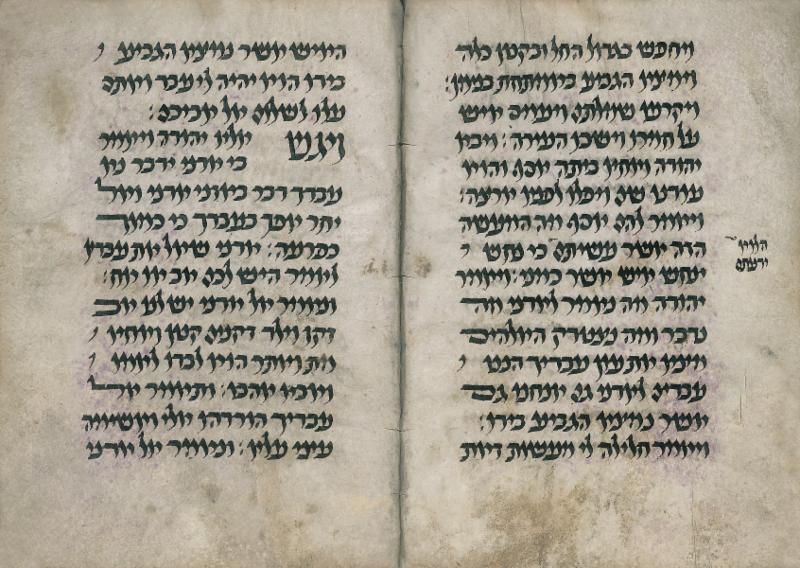 ויחפש בגדול החל ובקטן כלה
וימצא הגביע באמתחת בנימן:
ויקרעו שמלתם ויעמס איש
על חמרו וישבו העירה: ויבא
יהודה ואחיו ביתה יוסף והוא
עודנו שם ויפלו לפניו ארצה:
ויאמר להם יוסף מה המעשה
הזה אשר עשיתם כי נחש
ינחש איש אשר כמני: ויאמר
יהודה מה נאמר לאדני מה
נדבר ומה נצטדק האלהים
מצא את עון עבדיך הננו
עבדים לאדני גם אנחנו גם
אשר נמצא הגביע בידו:
ויאמר חלילה לי מעשות זאת
הלוא
ידעתם
האיש אשר נמצא הגביע
בידו הוא יהיה לי עבד ואתם
עלו לשלום אל אביכם:
ויגש אליו יהודה ויאמר
בי אדני ידבר נא
עבדך דבר באזני אדני ואל
יחר אפך בעבדך כי כמוך
כפרעה: אדני שאל את עבדיו
לאמר היש לכם אב או אח:
ונאמר אל אדני יש לנו אב
זקן וילד זקנים קטן ואחיו
מת ויותר הוא לבדו לאמו
ואביו אהבו: ותאמר אל
עבדיך הורדהו אלי ואשימה
עיני עליו: ונאמר אל אדני